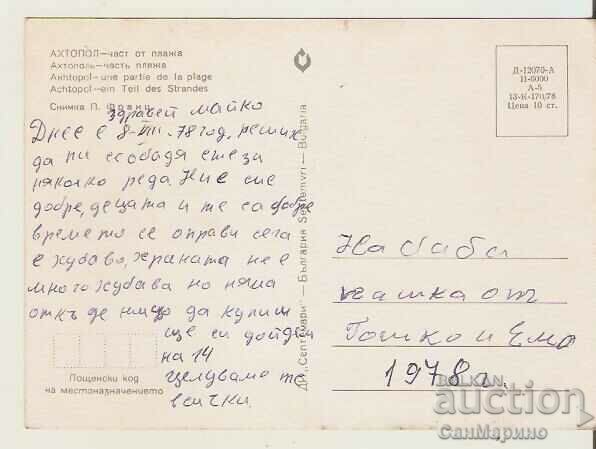 АХТОПОЛ—част от плажа
Ахтополь—часть пляжа
Akhtopol—une partie de la plage
Achtopol—ein Teil des Strandes
Снимка П. Франц
здравей майко
Днес е 8-VIII-78 год. реших
да ти се обадя с тези
няколко реда. Ние сме
добре, децата и те са добре
времето се оправи сега
е хубаво, храната не е
много хубава но няма
от къде нищо да купиш
ще си дойдем
на 14
целуваме те
всички.
Пощенски код
на местоназначението
ДП „Септември" — България Septemvri — Bulgaria
Д-12070-А
П-6000
А-5
13-К-170/78
Цена 10 ст.
На баба
кашка от
Гошко и Емо
1978 г.
BALKAN
auction
СанМарино